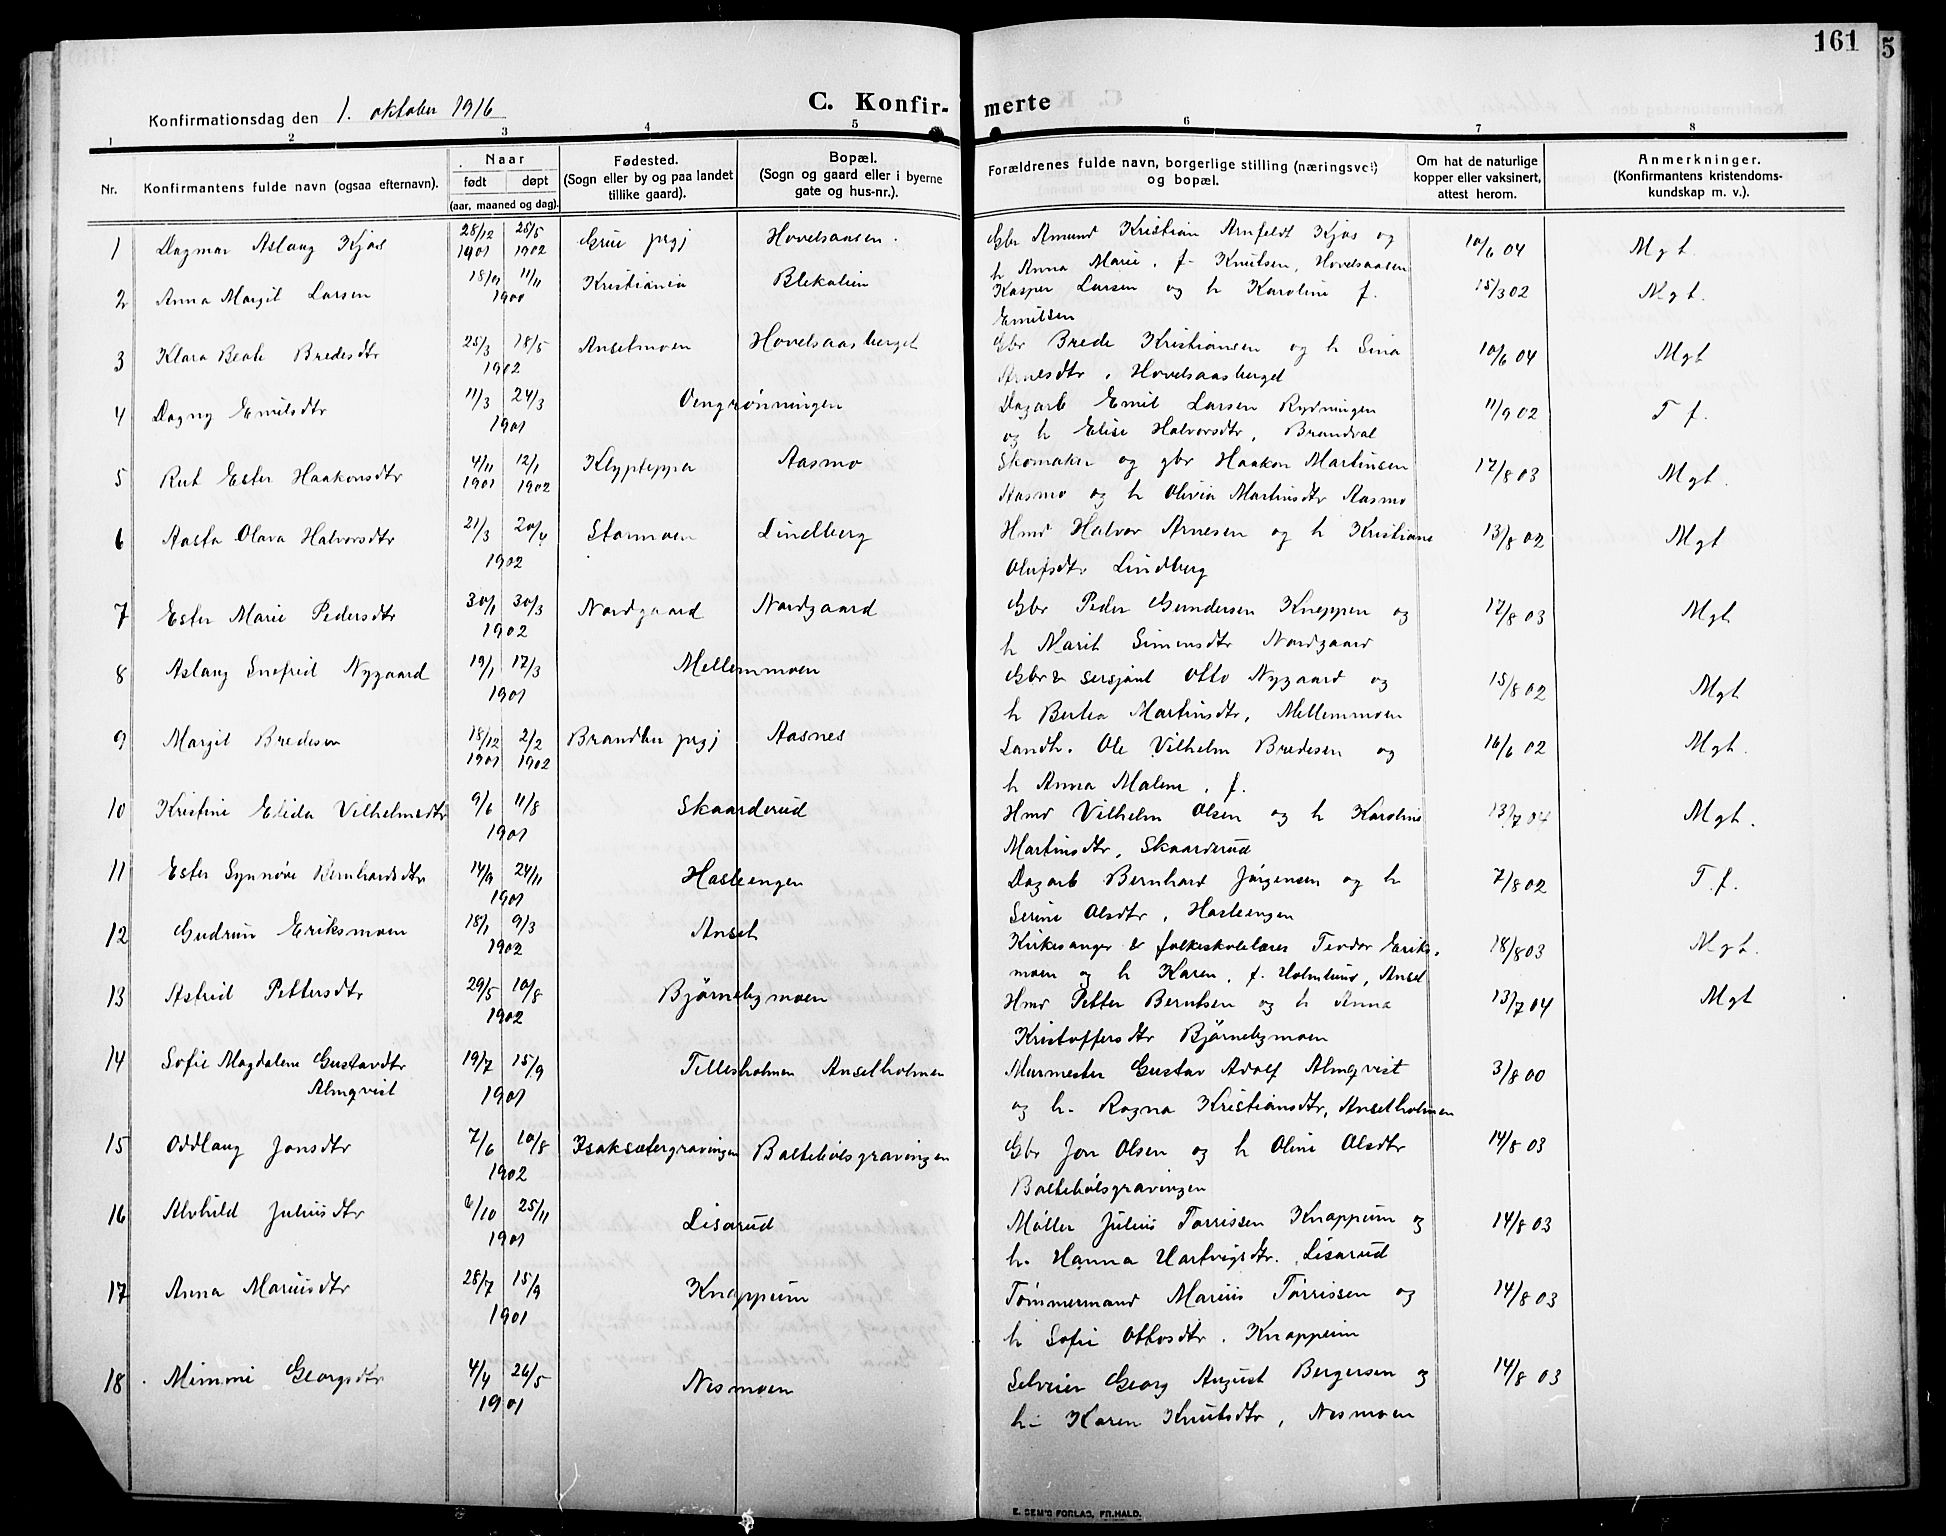 161
5
Konfirmationsdag den 1. oktober 1916
C. Konfir- merte
1 2 3 4 5 6 7 8
Nr. Konfirmantens fulde navn (ogsaa efternavn). Naar født døpt (aar, maaned og dag). Fødested. (Sogn eller by og paa landet tillike gaard). Bopæl. (Sogn og gaard eller i byerne gate og hus-nr.). Forældrenes fulde navn, borgerlige stilling (næringsvei) og bopæl. Om hat de naturlige kopper eller vaksinert, attest herom. Anmerkninger. (Konfirmantens kristendoms-kundskap m. v.).
1 Dagmar Aslaug Kjos 28/12 1901 26/5 1902 Grue prgj Hovelsaasen. Gbr Amund Kristian Arnfeldt Kjos og 10/6 04 Mgt
h Anna Marie, f. Knutsen, Hovelsaasen
2 Anna Margit Larsen 11/11 1900 Kristiania Kasper Larsen og h Karoline f. 15/3 02 Mgt.
Emilsen
3 Klara Beate Bredesdtr 25/3 18/5 1902 Anselmoen Hovelsaasberget Gbr Brede Kristiansen og h Sina 10/6 04 Mgt
Arnesdtr, Hovelsaasberget
4 Dagny Emilsdtr 11/3 24/3 1901 Dagarb Emil Larsen Rydningen 11/9 02 T f.
og h Elise Halvorsdtr, Brandval
5 Rut Ester Haakonsdtr 4/11 1901 12/1 1902 Klypteppa Aasmo Skomaker og gbr Haakon Martinsen 17/8 03 Mgt.
Aasmo og h Olivia Martinsdtr Aasmo
6 Aasta Olava Halvorsdtr 21/3 20/4 1902 Stormoen Lindberg Hmd Halvor Arnesen og h Kristiane 13/8 02 Mgt
Olufsdtr Lindberg
7 Ester Marie Pedersdtr 30/1 30/3 1902 Nordgaard Nordgaard Gbr Peder Gundersen Kneppen og 17/8 03 Mgt
h Marit Simensdtr Nordgaard
8 Aslaug Snefrid Nygaard 19/1 17/3 1901 Mellemmoen Gbr & sersjant Otto Nygaard og 15/8 02 Mgt
h Bertea Martinsdtr, Mellemmoen
9 Margit Bredesen 18/12 1901 2/2 1902 Brandbu prgj Aasnes Landh. Ole Vilhelm Bredesen og 16/6 02 Mgt.
h Anna Malene, f.
10 Kristine Elida Vilhelmsdtr 9/6 11/8 1901 Skaarderud Hmd Vilhelm Olsen og h Karoline 13/7 04 Mgt.
Martinsdtr, Skaarderud
11 Ester Synnøve Bernhardsdtr 14/9 24/11 1901 Hasleengen Dagarb Bernhard Jørgensen og h 7/8 02 T.f.
Serine Olsdtr, Hasleengen
12 Gudrun Eriksmoen 18/1 9/3 1902 Ansel Kirkesanger & folkeskolelærer Teodor Eriks- 18/8 03 Mgt.
moen og h Karen, f. Holmlund, Ansel
13 Astrid Pettersdtr 29/5 10/8 1902 Bjørnebymoen Hmd Petter Berntsen og h Anna 13/7 04 Mgt
Kristoffersdtr Bjørnebymoen
14 Sofie Magdalene Gustavdtr 19/7 15/9 1901 Tillesholmen Anselholmen Murmester Gustav Adolf Almqvist 3/8 00
Almqvist og h. Ragna Kristiansdtr, Anselholmen
15 Oddlaug Jonsdtr 7/6 10/8 1902 Isaksætergravingen Baltebølsgravingen Gbr Jon Olsen og h Oline Olsdtr 14/8 03
Baltebølsgravingen
16 Alvhild Juliusdtr 6/10 25/11 1901 Lisarud Møller Julius Tørrissen Knappum og 14/8 03
h. Hanna Hartvigsdtr. Lisarud
17 Anna Mariusdtr 28/7 15/9 1901 Knappum Tømmermand Marius Tørrissen og 14/8 03
h Sofie Ottosdtr. Knappum
18 Mimmi Georgsdtr 4/4 26/5 1901 Nesmoen Selveier Georg August Bergersen og 14/8 03
h- Karen Knutsdtr, Nesmoen
E. SEM'S FORLAG, FR.HALD.